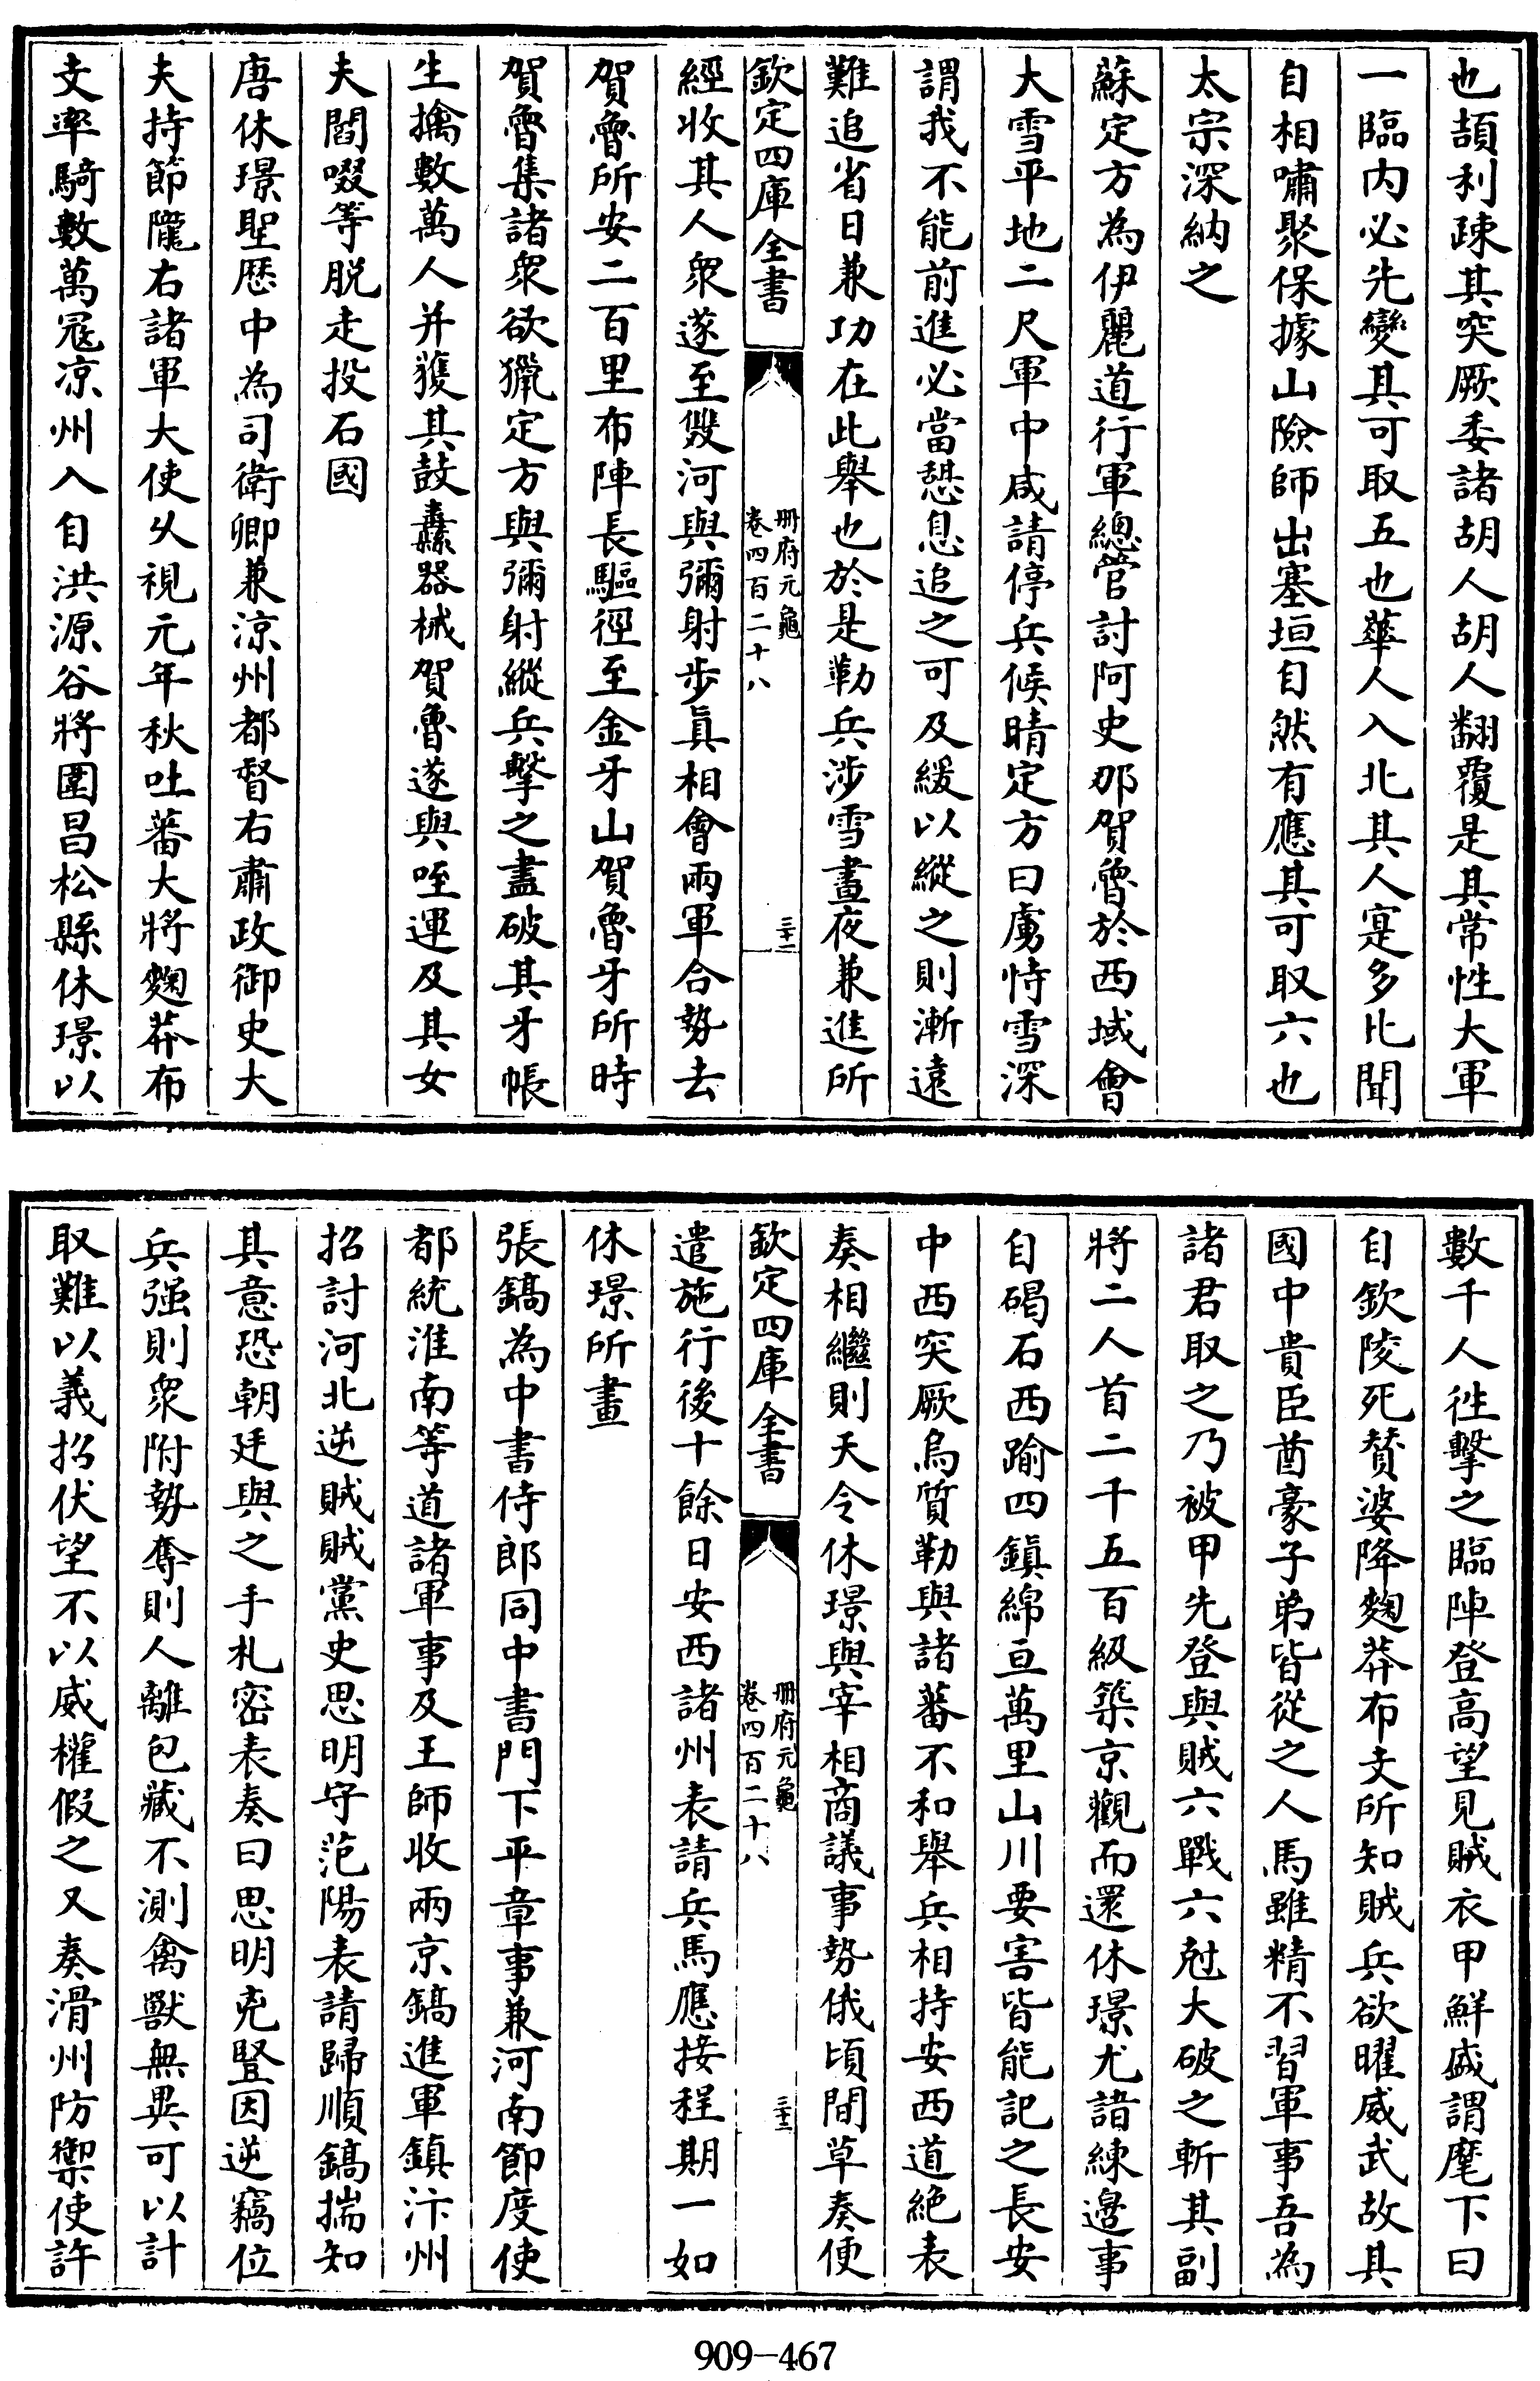 也頡利疎其突厥委諸胡人胡人翻覆是其常性大軍
一臨内必先變其可取五也華人入北其人寔多比聞
自相嘯聚保據山險師出塞垣自然有應其可取六也
太宗深納之
蘇定方為伊麗道行軍總管討阿史那賀魯於西域會
大雪平地二尺軍中咸請停兵候晴定方曰虜恃雪深
謂我不能前進必當憇息追之可及緩以縱之則漸遠
難追省日兼功在此舉也於是勒兵涉雪晝夜兼進所
欽定四庫全書
册府元龜
卷四百二十八
三十一
經收其人衆遂至雙河與彌射步真相會兩軍合勢去
賀魯所安二百里布陣長驅徑至金牙山賀魯牙所時
賀魯集諸衆欲獵定方與彌射縱兵擊之盡破其牙帳
生擒數萬人并獲其鼓纛器械賀魯遂與咥運及其女
夫閻啜等脱走投石國
唐休璟聖厯中為司衛卿兼涼州都督右肅政御史大
夫持節隴右諸軍大使乆視元年秋吐蕃大將麴莽布
支率騎數萬冦凉州入自洪源谷將圍昌松縣休璟以
數千人徃擊之臨陣登高望見賊衣甲鮮盛謂麾下曰
自欽陵死賛婆降麴莽布支所知賊兵欲曜威武故其
國中貴臣酋豪子弟皆從之人馬雖精不習軍事吾為
諸君取之乃被甲先登與賊六戰六尅大破之斬其副
將二人首二千五百級築京觀而還休璟尤諳練邉事
自碣石西踰四鎮綿亘萬里山川要害皆能記之長安
中西突厥烏質勒與諸蕃不和舉兵相持安西道絶表
奏相繼則天令休璟與宰相商議事勢俄頃間草奏便
欽定四庫全書
册府元龜
卷四百二十八
三十二
遣施行後十餘日安西諸州表請兵馬應接程期一如
休璟所畫
張鎬為中書侍郎同中書門下平章事兼河南節度使
都統淮南等道諸軍事及王師收兩京鎬進軍鎮汴州
招討河北逆賊賊黨史思明守范陽表請歸順鎬揣知
其意恐朝廷與之手札密表奏曰思明兇竪因逆竊位
兵强則衆附勢奪則人離包藏不測禽獸無異可以計
取難以義招伏望不以威權假之又奏滑州防禦使許
909-467